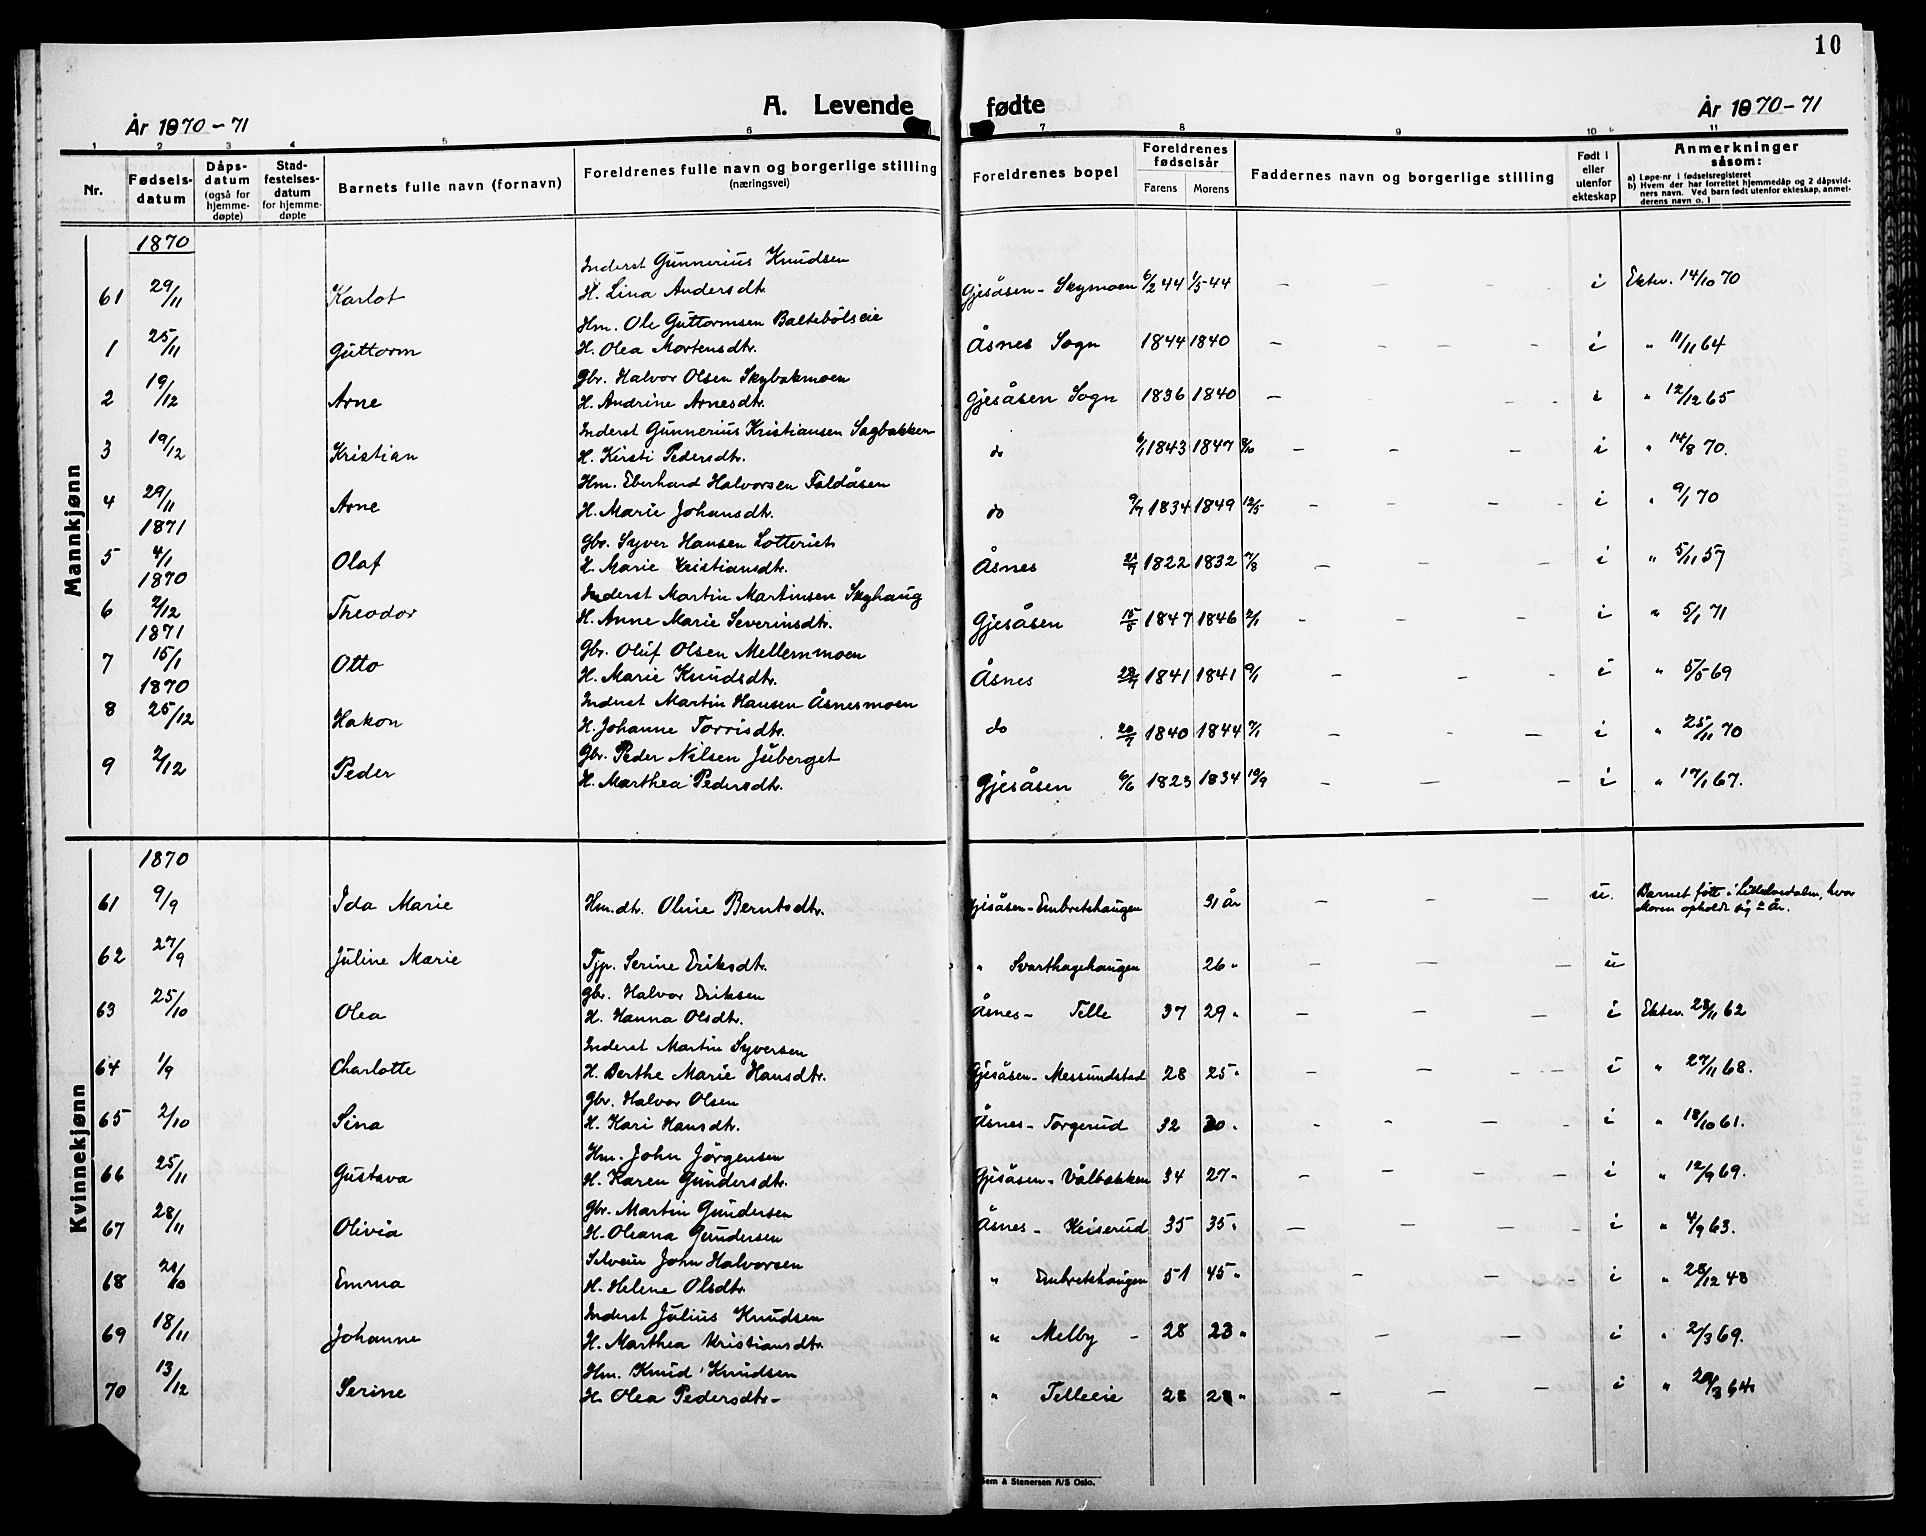 10
A. Levende fødte
År 1870-71
År 1870-71
1 2 3 4 5 6 7 8 9 10 11
Nr.
Fødsels-datum
Dåps-datum (også for hjemme-døpte)
Stad-festelses-datum for hjemme-døpte
Barnets fulle navn (fornavn)
Foreldrenes fulle navn og borgerlige stilling (næringsvei)
Foreldrenes bopel
Foreldrenes fødselsår
Farens Morens
Faddernes navn og borgerlige stilling
Født i eller utenfor ekteskap
Anmerkninger såsom:
a) Løpe-nr i fødselsregisteret
b) Hvem der har forrettet hjemmedåp og 2 dåpsvid-
ners navn. Ved barn født utenfor ekteskap, anmel-
derens navn o. l
Mannkjønn
1870
Inderst Gunnerius Knudsen
61 29/11 Karlot H. Lina Andersdtr. Gjesåsen - Skymoen 6/2 44 1/5-44 - - - - i Ektev. 14/10 70
Hm. Ole Guttormsen Baltebölseie
1 25/11 Guttorm H. Olea Mortensdtr. Åsnes Sogn 1844 1840 - - - - i " 11/11 64
Gbr. Halvor Olsen Skybakmoen
2 19/12 Arne H. Andrine Arnesdtr. Gjesåsen Sogn 1836 1840 - - - i " 12/12 65
Inderst Gunnerius Kristiansen Sagbakken
3 19/12 Kristian H. Kirsti Pedersdtr. do 6/1 1843 1847 8/10 - - - i " 14/8 70.
Hm. Eberhard Halvorsen Faldåsen
4 29/11 Arne H. Marie Johansdtr. do 9/7 1834 1849 12/5 - - - - i " 9/1 70
1871
Gbr. Syver Hansen Lotteriet
5 4/1 Olaf H. Marie Kristiansdtr. Åsnes 1822 1832 7/8 - - - i " 5/11 57
1870
Inderst Martin Martinsen Skyhaug
6 2/12 Theodor H. Anne Marie Severinsdtr. Gjesåsen 15/8 1847 1846 2/1 - - - i " 5/1 71
1871
Gbr. Oluf Olsen Mellemmoen
7 15/1 Otto H. Marie Knudsdtr. Åsnes 1841 1841 9/1 - - - i " 5/5 69
1870
Inderst Martin Hansen Åsnesmoen
8 25/12 Hakon H. Johanne Torrisdtr. do 20/7 1840 1844 7/1 - - - i " 25/11 70
Gbr. Peder Nilsen Juberget
9 2/12 Peder H. Marthea Pedersdtr. Gjesåsen 6/6 1823 1834 19/9 - - - i " 17/1 67.
Kvinnekjønn
1870
61 9/9 Ida Marie Hm.dtr. Oline Berntsdtr. Gjesåsen - Embretshaugen 31 år - - - - u. Barnet født i Lilleelvedalen, hvor
Moren opholdt sig år.
62 27/9 Juline Marie Tjp. Serine Eriksdtr. " Svarthagehaugen 26 " - - - u
Gbr. Halvor Eriksen
63 25/10 Olea H. Hanna Olsdtr. Åsnes - Telle 37 29 " - - - i Ektev. 23/11 62
Inderst Martin Syversen
64 1/9 Charlotte H. Berthe Marie Hansdtr. Gjesåsen - Messundstad 28 25 " - - - - i " 27/11 68.
Gbr. Halvor Olsen
65 2/10 Lina H. Kari Hansdtr. Åsnes - Torgerud 32 30 " - - - i " 18/10 61.
Hm. John Jörgensen
66 25/11 Gustava H. Karen Gundersdtr. Gjesåsen - Vålbakken 34 27 " - - - - i " 12/9 69.
Gbr. Martin Gundersen
67 28/11 Olivia H. Oleana Gundersen Åsnes - Keiserud 35 35 " - - - i " 4/9 63.
Selveier John Halvorsen
68 Emma H. Helene Olsdtr. " Embretshaugen 51 45 " - - - i " 28/12 48
Inderst Julius Knudsen
69 18/11 Johanne H. Marthea Kristiansdtr " Melby - 28 23 " - - - i " 2/3 69.
Hm. Knud Knudsen
70 13/12 Serine H. Olea Pedersdtr - " Telleeie 28 28 " - - - - i " 20/3 64.
Sem & Stenersen A/S Oslo.